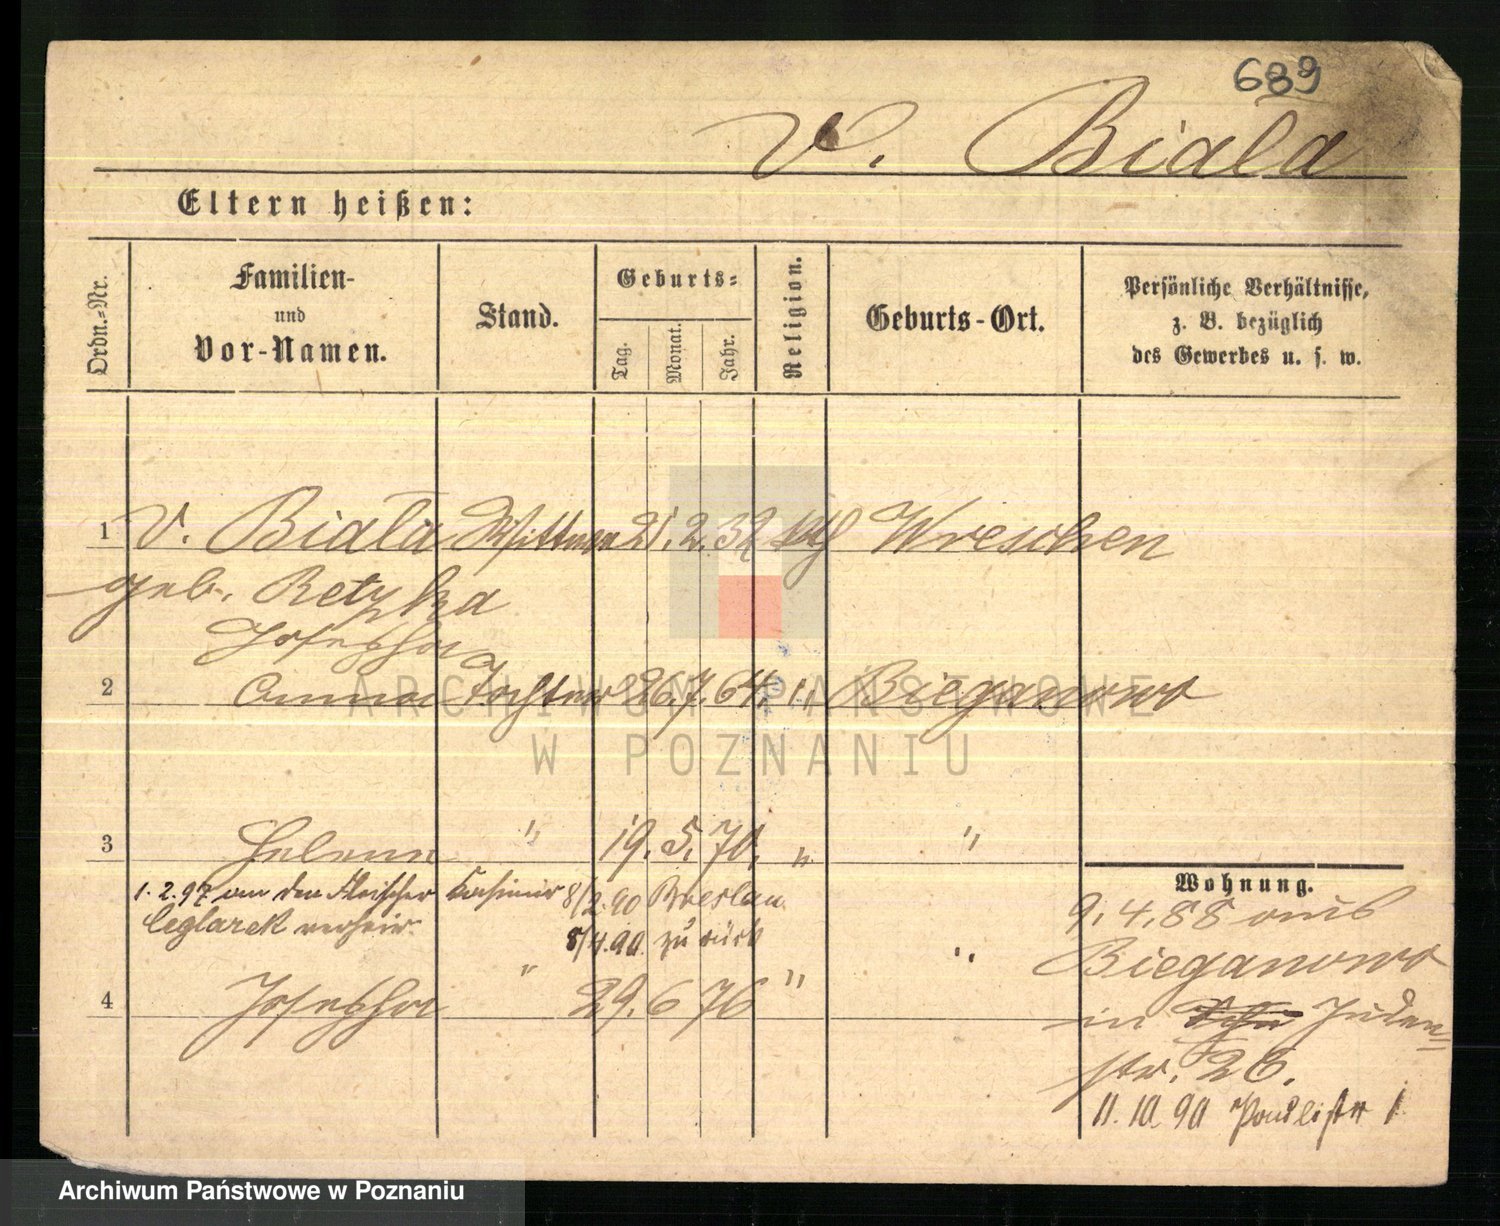 689
v. Biała
Eltern heißen:
Ordn.-Nr.
Familien-
und
Vor-Namen.
Stand.
Geburts-
Tag.
Monat.
Jahr.
Religion.
Geburts-Ort.
Persönliche Verhältnisse,
z. B. bezüglich
des Gewerbes u. s. w.
1 v. Biała Wittwe 21. 2. 32 kath Wreschen
geb. Retzka
Josepha
2 Anna Tochter 26. 7. 64. " Bieganowo
3 Helene " 19. 5. 70. " "
1. 2. 97 an den Fleischer Kasimir 8/2. 90 Breslau
Ceglarek verheir. 8/4. 90. zurück
4 Josepha " 29. 6 76 " "
Wohnung.
9. 4. 88 aus
Bieganowo
in Juden-
str. 26.
11. 10. 90 Paulistr 1
ARCHIWUM PAŃSTWOWE
W POZNANIU
Archiwum Państwowe w Poznaniu